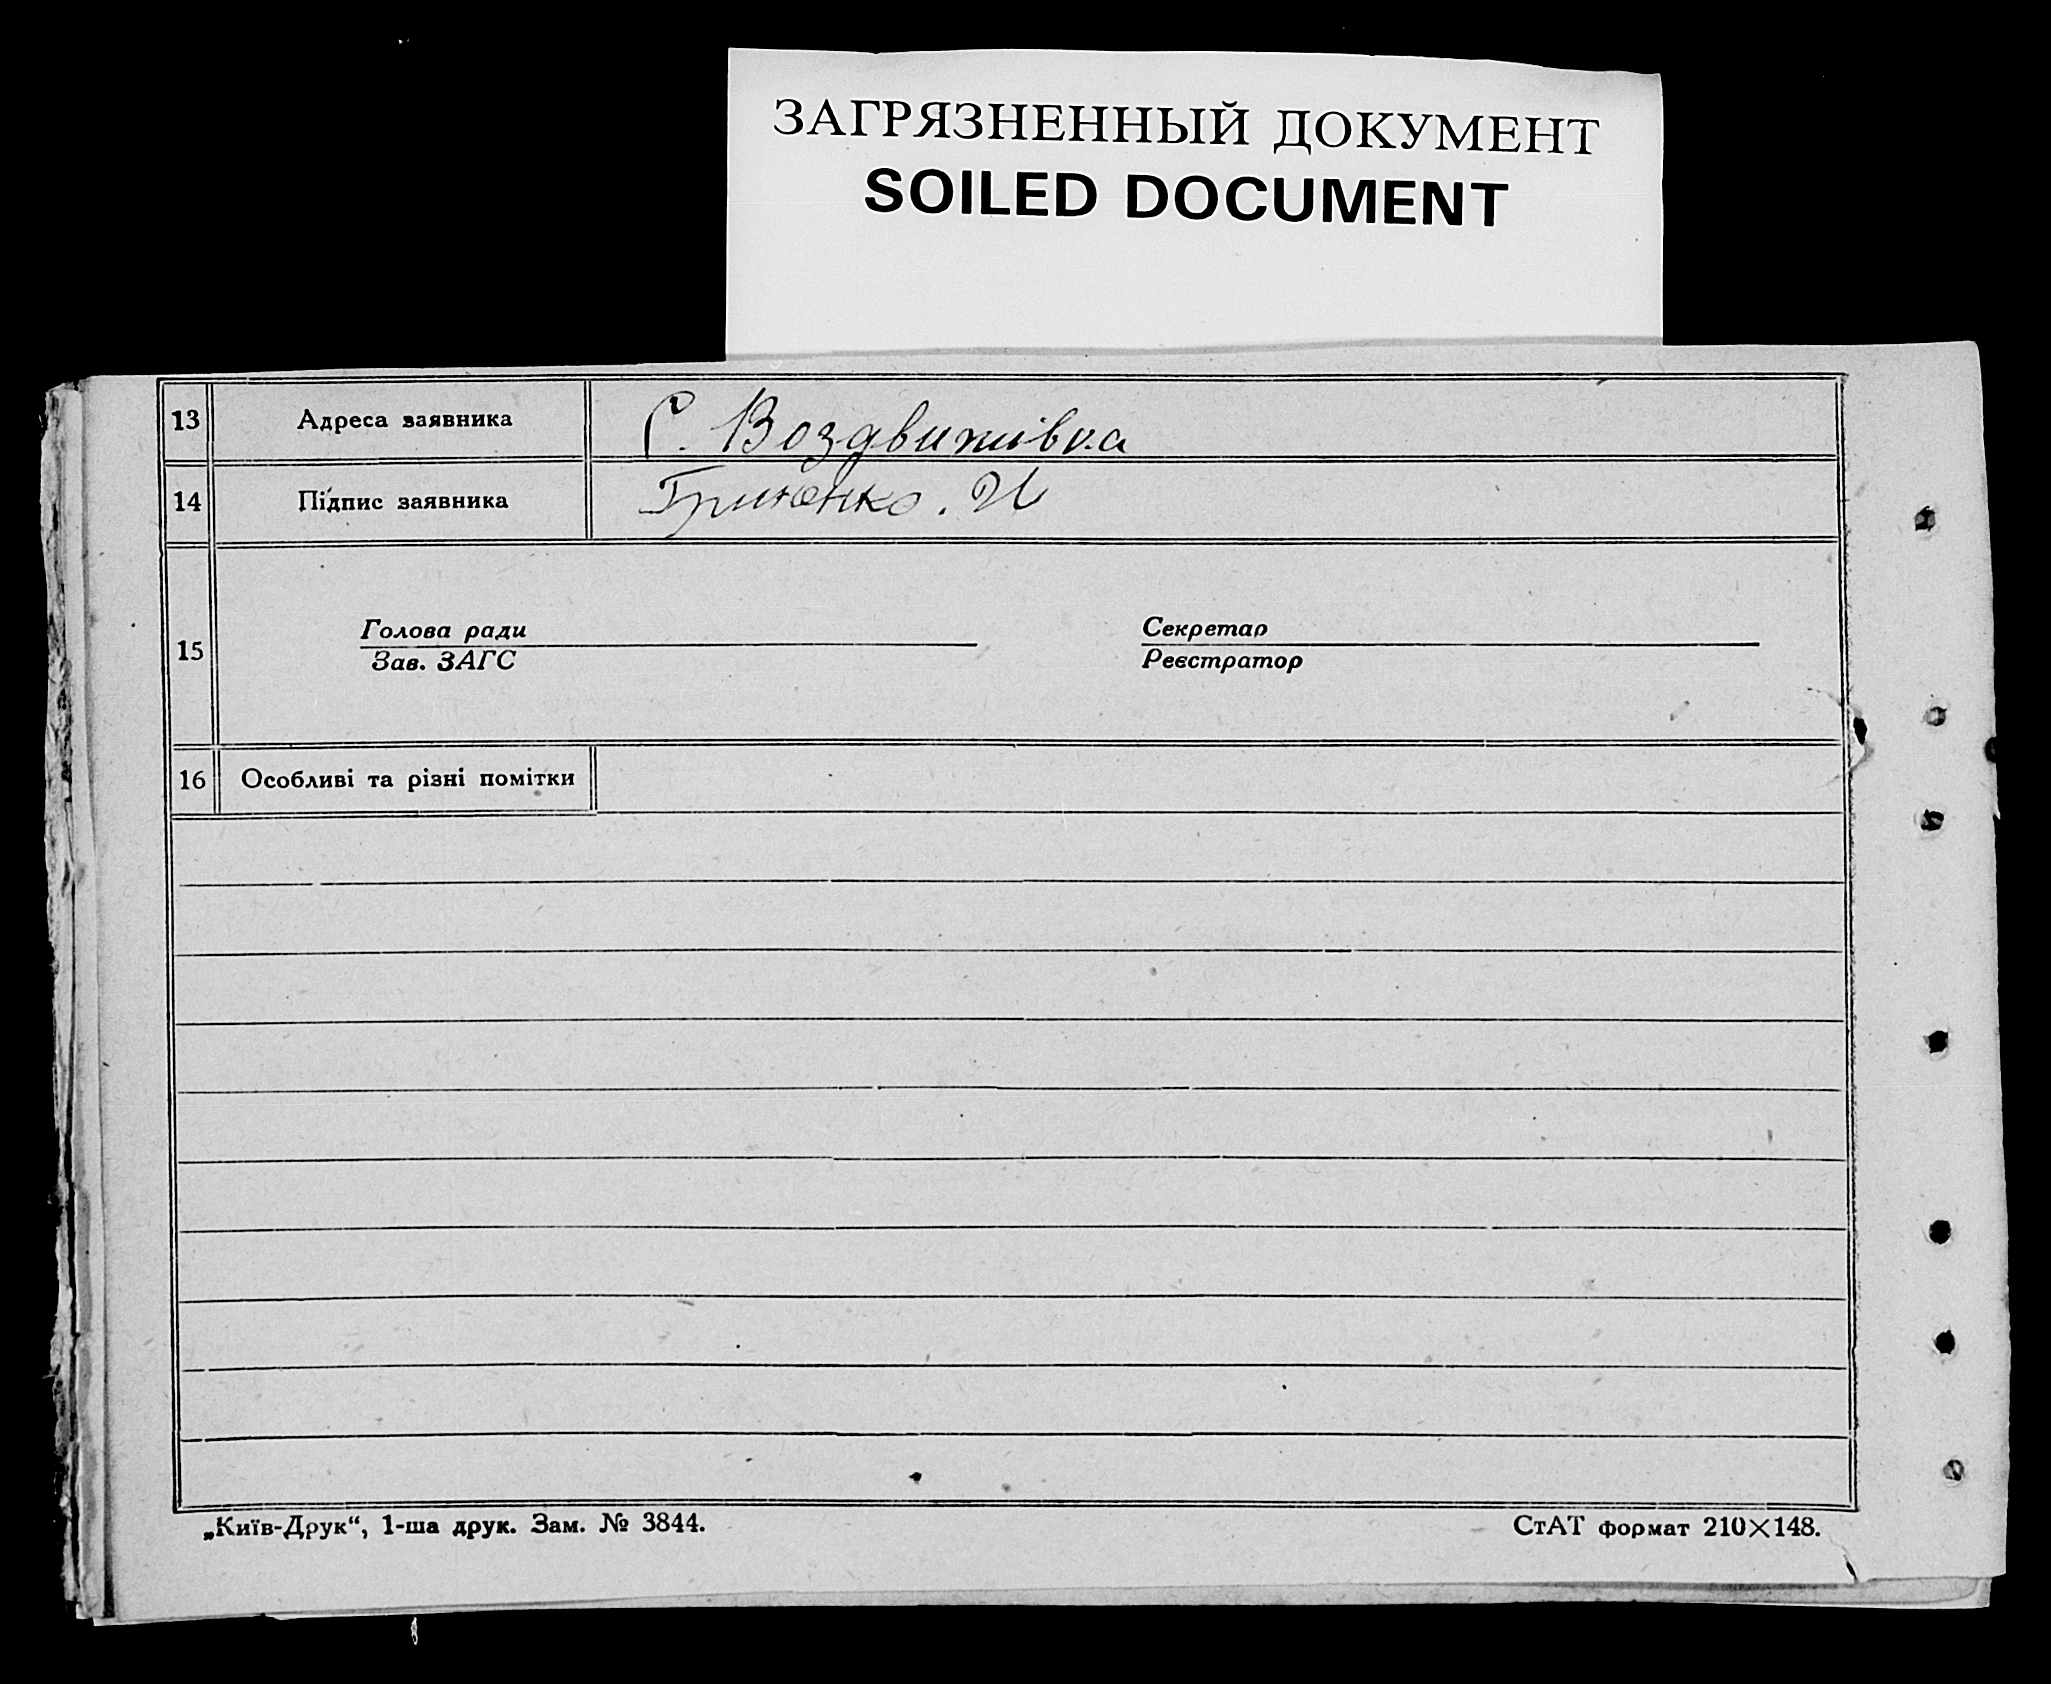 ЗАГРЯЗНЕННЫЙ ДОКУМЕНТ
SOILED DOCUMENT
13 Адреса заявника С. Воздвижівка
14 Підпис заявника Гриненко. И
15
Голова ради
Зав. ЗАГС
Секретар
Реєстратор
16 Особливі та різні помітки
„Київ-Друк“, 1-ша друк. Зам. № 3844.
СтАТ формат 210×148.